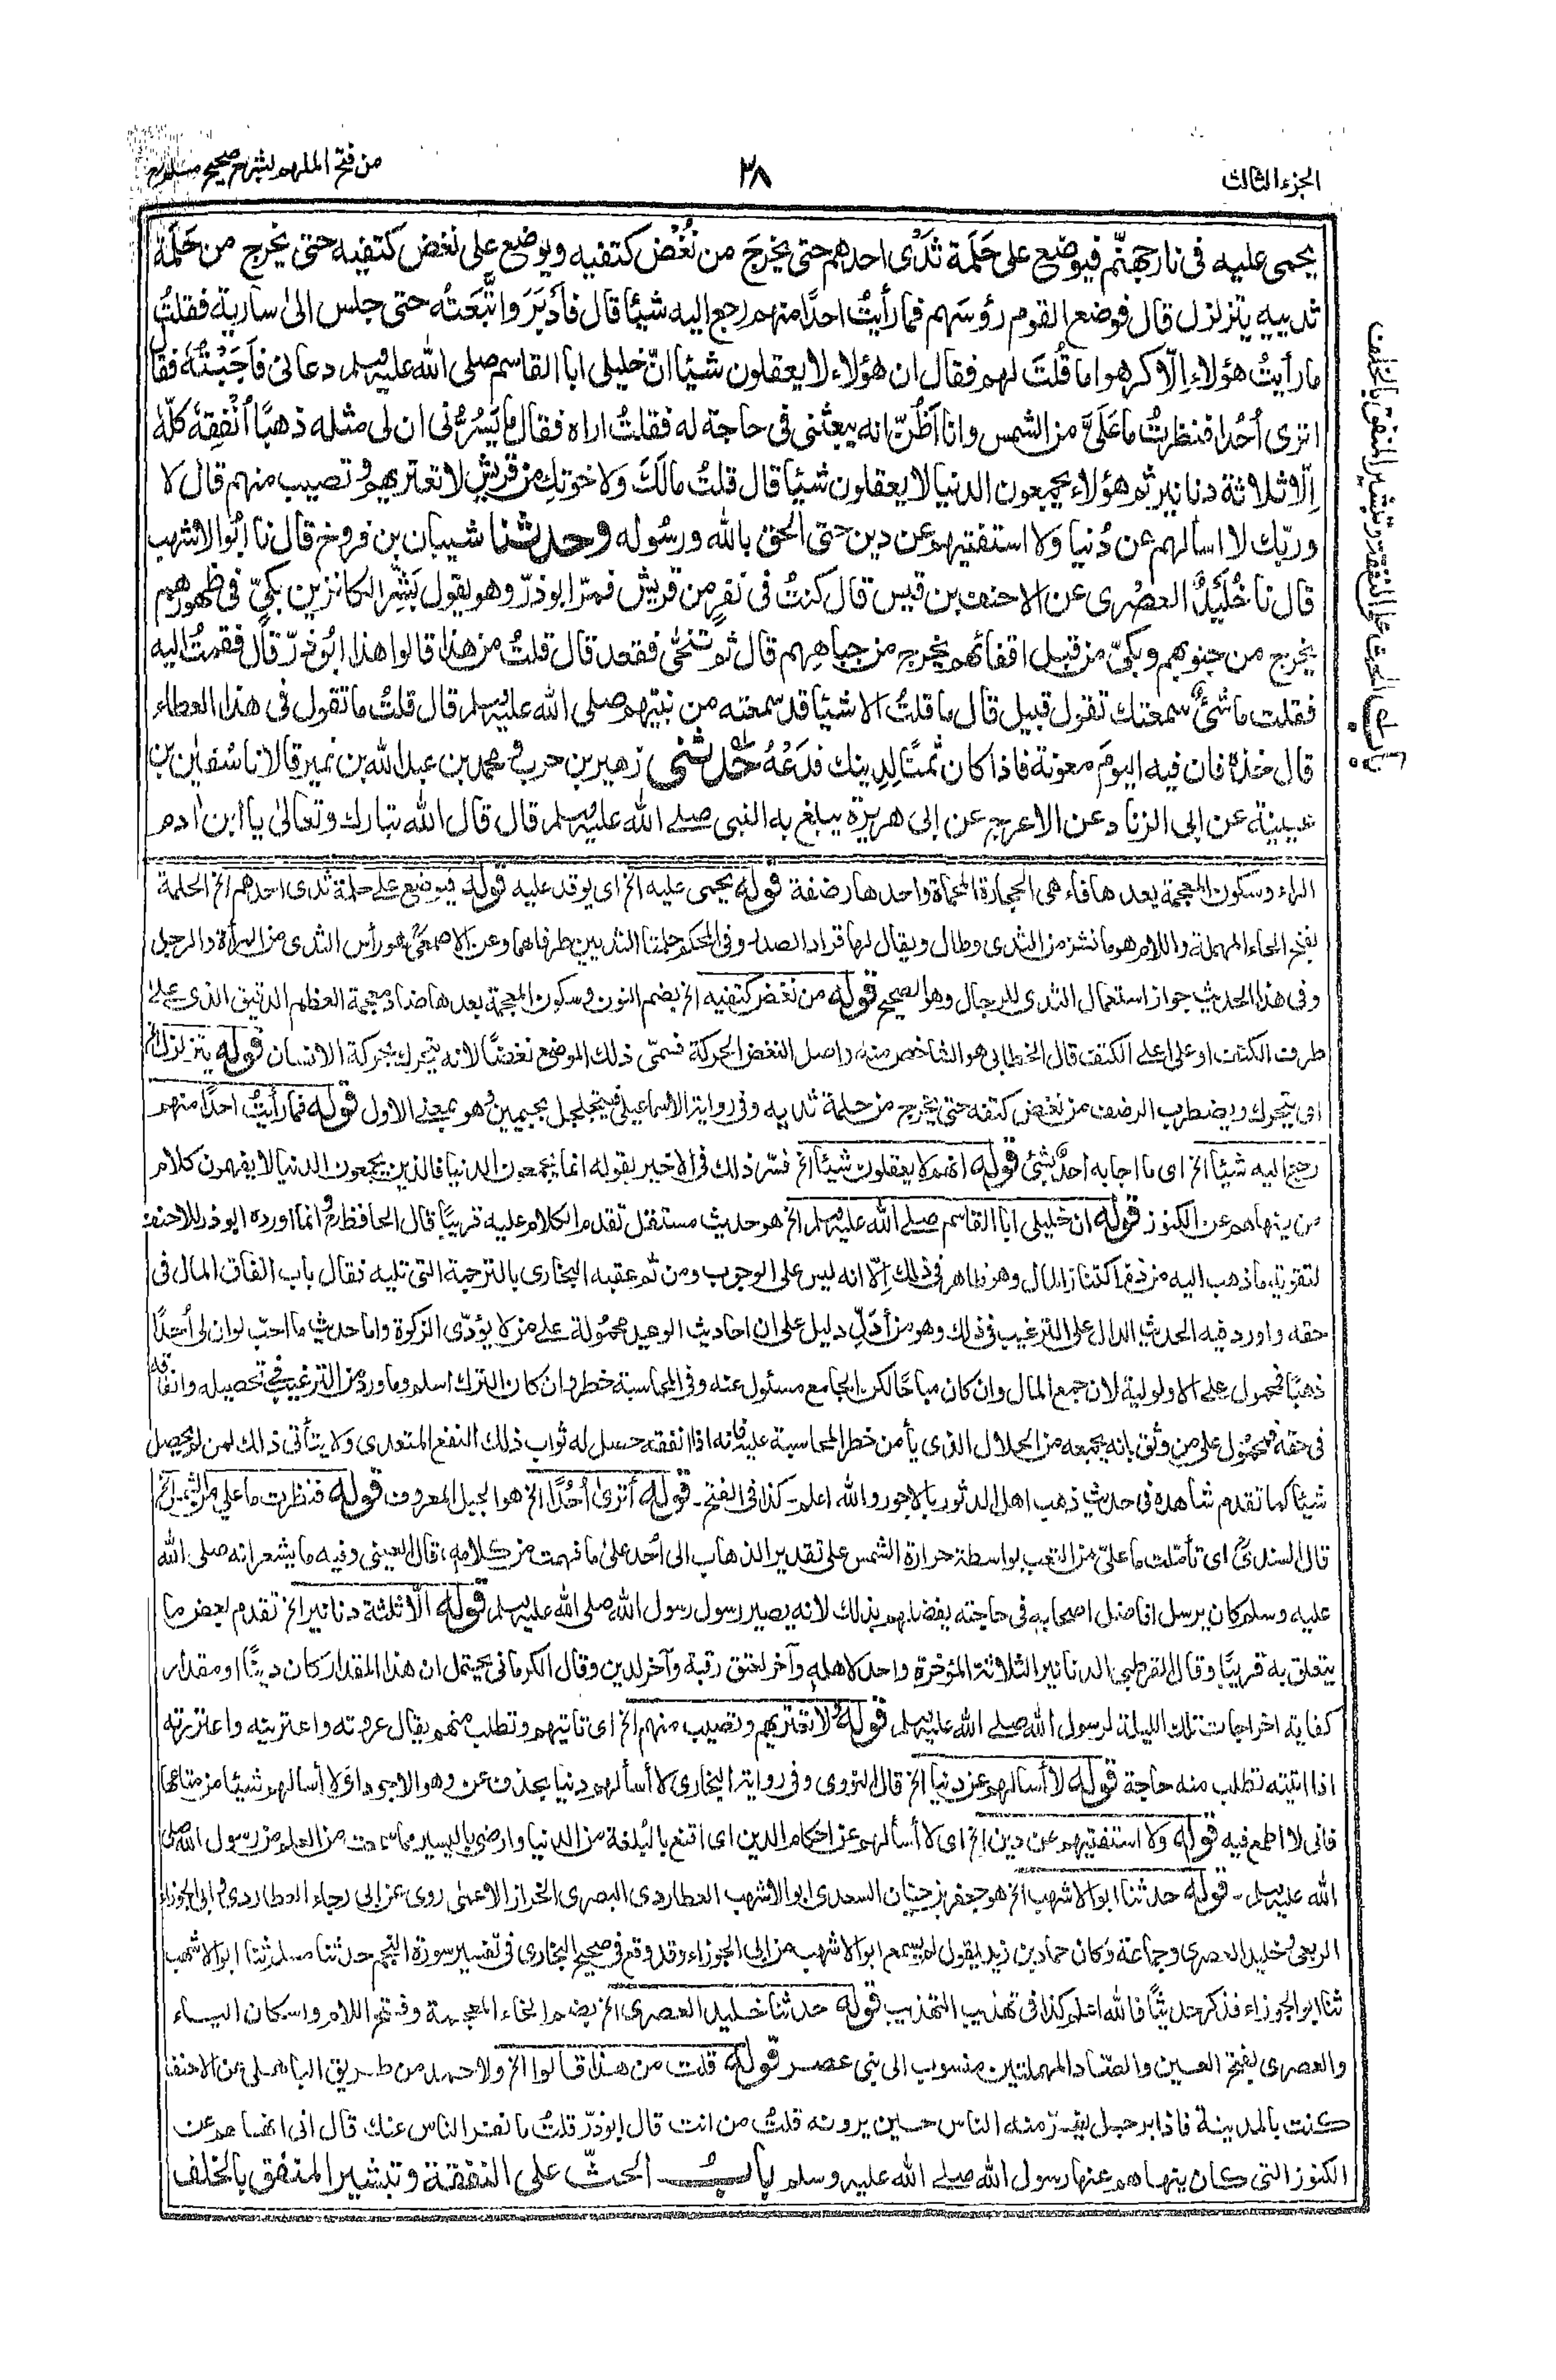 الجزء الثالث
٣٨
من فتح الملهم بشرح صحيح مسلم
يحمى عليه فى نار جهنّم فيوضع على حَلَمة ثَدْى احدهم حتى يخرجَ من نُغْض كتفيه ويوضع على نغض كتفيه حتى يخرج من حَلَمة
ثدييه يتزلزل قال فوضع القوم رؤسَهم فمارأيتُ احدًا منهم رجع اليه شيئا قال فأدبَرَ واتَّبَعتُه حتى جلس الىٰ سارية فقلتُ
مارأيتُ هؤلاء إلّا كرهوا ما قُلتَ لهم فقال ان هؤلاء لا يعقلون شيئا انّ خليلى ابا القاسم صلى الله عليه وسلم دعانى فأجَبْتُه فقال
اترى أُحُدا فنظرتُ ما عَلَىَّ من الشمس وانا أظُنّ انه يبعثنى فى حاجة له فقلتُ اراه فقال ما يَسُرُّنى ان لى مثله ذهبًا أُنْفِقهُ كلّهٗ
إلّا ثلاثة دنانير ثم هؤلاء يجمعون الدنيا لا يعقلون شيئا قال قلتُ مالَكَ ولاخوتكِ من قريش لا تعتريهم وتصيب منهم قال لا
وربّك لا اسالهم عن دُنيا ولا استفتيهم عن دين حتى الحق بالله ورسُوله وحدثنا شيبان بن فروخ قال نا ابُوالاشهب
قال نا خُلَيدٌ العصَرى عن الاحنف بن قيس قال كنتُ فى نفرٍ من قريش فمرّ ابوذرّ وهو يقول بَشِّرِ الكانزين بكىّ فى ظهورهم
يخرج من جنوبهم وبكىّ من قبل اقفائهم يخرج من جباهِهم قال ثم تنحّى فقعد قال قلتُ من هذا قالوا هذا ابُوذرّ قال فقمتُ اليه
فقلت ما شىءٌ سمعتك تقول قبيل قال ما قلتُ الا شيئا قد سمعته من نبيّهم صلى الله عليه وسلم قال قلتُ ما تقول فى هذا العطاء
قال خذه فان فيه اليومَ معونة فاذا كان ثمنًا لِدِينك فدَعْهُ حدثنى زهير بن حرب ومحمد بن عبد الله بن نمير قالا نا سُفيٰن بن
عيينة عن ابى الزناد عن الاعرج عن ابى هريرة يبلغ به النبى صلى الله عليه وسلم قال قال الله تبارك وتعالىٰ يا ابن اٰدم
الراء وسكون المعجمة بعدها فاء هى الحجارة المحماة واحدها رضفة قوله يحمى عليه الخ اى يوقد عليه قوله فيوضع على حلمة ثدى احدهم الخ الحلمة
بفتح الحاء المهملة واللام هو ما نشز من الثدى وطال ويقال لها قراد الصدر وفى المحكم حلمتا الثديين طرفاهما وعن الاصمعى هو رأس الثدى من المرأة والرجل
وفى هذا الحديث جواز استعمال الثدى للرجال وهو الصحيح قوله من نغض كتفيه الخ بضم النون وسكون المعجمة بعدها ضاد معجمة العظم الدقيق الذى على
طرف الكتف او على اعلى الكتف قال الخطابى هو الشاخص منه واصل النغض الحركة فسمّى ذلك الموضع نغضًا لانه يتحرك بحركة الانسان قوله يتزلزل الخ
اى يتحرك ويضطرب الرضف من نغض كتفه حتى يخرج من حلمة ثديه وفى رواية الاسماعيلى فيتجلجل بجيمين وهو بمعنى الاول قوله فمارأيتُ احدًا منهم
رجع اليه شيئا الخ اى ما اجابه احدٌ بشئ قوله انهم لا يعقلون شيئا الخ فسّر ذلك فى الاخير بقوله انما يجمعون الدنيا فالذين يجمعون الدنيا لا يفهمون كلام
من ينهاهم عن الكنوز قوله ان خليلى ابا القاسم صلى الله عليه وسلم الخ هو حديث مستقل تقدم الكلام عليه قريبًا قال الحافظ وانما اورده ابوذر للاحنف
لتقوية ما ذهب اليه من ذم اكتناز المال وهو ظاهر فى ذلك إلّا انه ليس على الوجوب ومن ثم عقبه البخارى بالترجمة التى تليه فقال باب انفاق المال فى
حقه واورد فيه الحديث الدال على الترغيب فى ذلك وهو من أدلّ دليل على ان احاديث الوعيد محمُولة على من لا يؤدّى الزكوة واما حديث ما احبّ لو ان لى أُحُدًا
ذهبًا فمحمول على الاولوية لان جمع المال وان كان مباحًا لكن الجامع مسئول عنه وفى المحاسبة خطر وان كان الترك اسلم وما ورد من الترغيب فى تحصيله وانفاقه
فى حقه فمحمُول على من وثق بانه يجمعه من الحلال الذى يأمن خطر المحاسبة عليه فانه اذا انفقه حصل له ثواب ذلك النفع المتعدى ولا يتأتى ذلك لمن لم يحصل
شيئا كما تقدم شاهده فى حديث ذهب اهل الدثور بالاجور والله اعلم - كذا فى الفتح - قوله أترى أُحُدًا الخ هو الجبل المعروف قوله فنظرت ما على من الشمس الخ
قال السندىؒ اى تأمّلت ما علىّ من التعب بواسطة حرارة الشمس على تقدير الذهاب الى أحد على ما فهمت من كلامه، قال العينى وفيه ما يشعر انه صلى الله
عليه وسلم كان يرسل افاضل اصحابه فى حاجته يفضلهم بذلك لانه يصير رسول رسول الله صلى الله عليه وسلم قوله الّا ثلثة دنانير الخ تقدم بعض ما
يتعلق به قريبًا وقال القرطبى الدنانير الثلاثة المؤخرة واحد لاهله وآخر لعتق رقبة وآخر لدين وقال الكرمانى يحتمل ان هذا المقدار كان دينًا او مقدار
كفاية اخراجات تلك الليلة لرسول الله صلى الله عليه وسلم قوله لا تعتريهم وتصيب منهم الخ اى تاتيهم وتطلب منهم يقال عروته واعتريته واعتررته
اذا اتيته تطلب منه حاجة قوله لا أسالهم عن دنيا الخ قال النووى وفى رواية البخارى لا أسألهم دنيا بحذف عن وهو الاجود اى لا أسالهم شيئا من متاعها
فانى لا اطمع فيه قوله ولا استفتيهم عن دين الخ اى لا أسألهم عن احكام الدين اى اقنع بالبُلغة من الدنيا وارضى باليسير مما سمعت من العلم من رسول الله صلى
الله عليه وسلم - قوله حدثنا ابوالاشهب الخ هو جعفر بن حيّان السعدى ابوالاشهب العطاردى البصرى الخراز الاعمىٰ روى عن ابى رجاء العطاردى وابى الجوزاء
الربعى وخليد العصرى وجماعة وكان حماد بن زيد يقول لم يسمع ابوالاشهب من ابى الجوزاء وقد وقع فى صحيح البخارى فى تفسير سورة النجم حدثنا مسلم ثنا ابوالاشهب
ثنا ابوالجوزاء فذكر حديثًا فالله اعلم كذا فى تهذيب التهذيب قوله حدثنا خليد العصرى الخ بضم الخاء المعجمة وفتح اللام واسكان الياء
والعصرى بفتح العين والصّاد المهملتين منسوب الى بنى عصر قوله قلت من هذا قالوا الخ ولاحمد من طريق الباهلى عن الاحنف
كنت بالمدينة فاذا برجل يفر منه الناس حين يرونه قلتُ من انت قال ابوذرّ قلتُ ما نفر الناس عنك قال انى انهاهم عن
الكنوز التى كان ينهاهم عنها رسول الله صلى الله عليه وسلم بابُ الحثّ على النفقة وتبشير المنفق بالخلف
باب الحث على النفقة وتبشير المنفق بالخلف